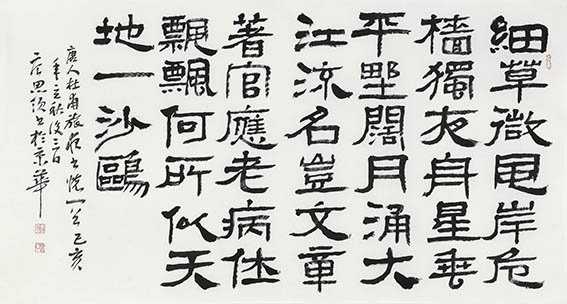 細草微風岸危
檣獨夜舟星垂
平野闊月涌大
江流名豈文章
著官應老病休
飄飄何所似天
地一沙鷗
唐人杜甫旅夜书懷一首己亥
年立秋後三日
书於京華